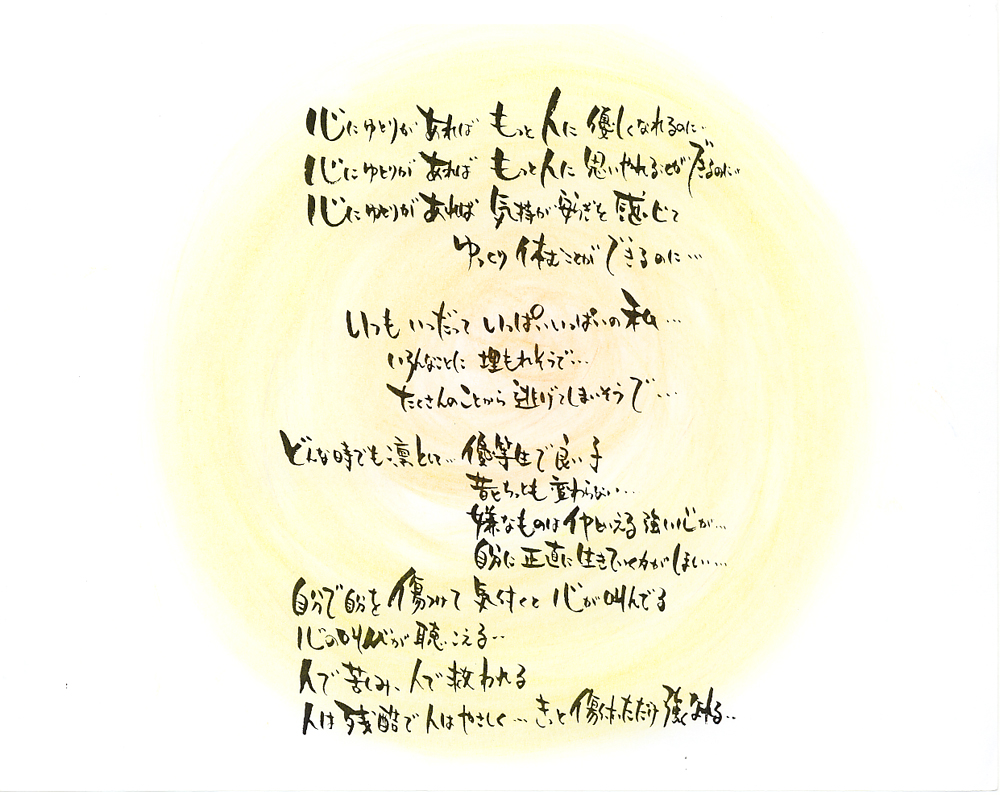 心にゆとりがあれば もっと人に 優しくなれるのに…
心にゆとりが あれば もっと人に 思いやれることが できるのに…
心にゆとりが あれば 気持が 安らぎを 感じて
ゆっくり 休むことが できるのに…
いつも いつだって いっぱいいっぱいの 私…
いろんなことに 埋もれそうで…
たくさんのことから 逃げてしまいそうで…
どんな時でも 凛として… 優等生で良い子
昔とちっとも 変わらない…
嫌なものは イヤといえる 強い心が…
自分に 正直に 生きていく力がほしい…
自分で自分を 傷つけて 気付くと 心が叫んでる
心の叫びが 聴こえる…
人で 苦しみ、人で 救われる
人は 残酷で 人はやさしく… きっと 傷付いただけ 強くなれる…